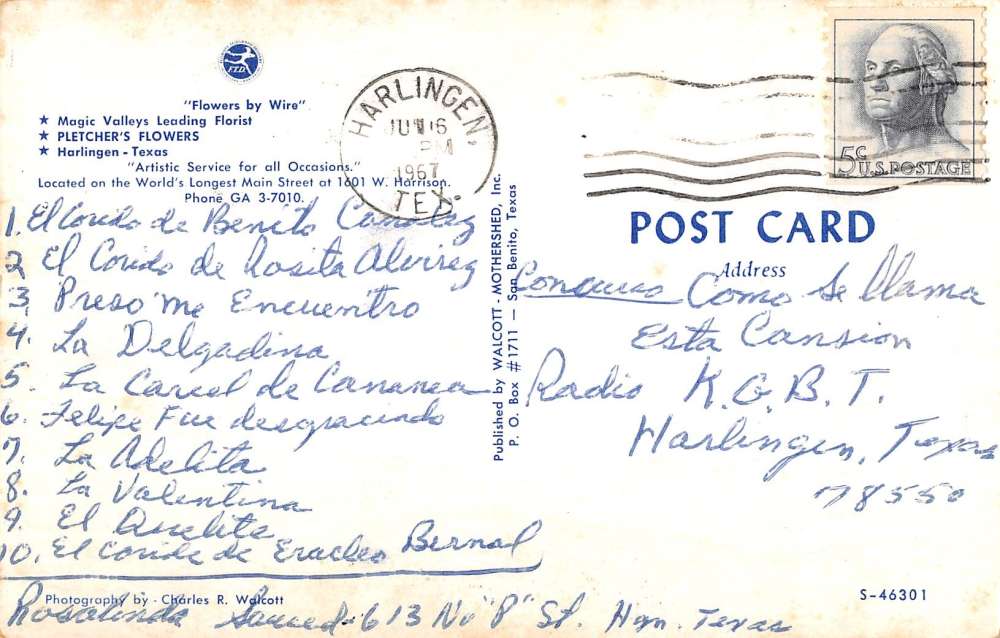 F.T.D.
"Flowers by Wire"
★ Magic Valleys Leading Florist
★ PLETCHER'S FLOWERS
★ Harlingen - Texas
"Artistic Service for all Occasions."
Located on the World's Longest Main Street at 1601 W. Harrison.
Phone GA 3-7010.
HARLINGEN,
PM
1967
TEX.
5c
U.S. POSTAGE
POST CARD
Address
Published by WALCOTT - MOTHERSHED, Inc.
P. O. Box #1711 — San Benito, Texas
1. El Corido de Benito Canalez
2 El Corido de Rosita Alvirez
3. Preso me Encuentro
4. La Delgadina
5. La Carcel de Cananea
6. Felipe Fue desgraciado
7. La Adelita
8. La Valentina
9. El Quelite
10. El Corido de Eracleo Bernal
Concurso Como Se llama
Esta Cansion
Radio K.G.B.T.
Harlingen, Texas
78550
Photography by - Charles R. Walcott
S-46301
Rosalinda 613 No "P" St. Hgn. Texas